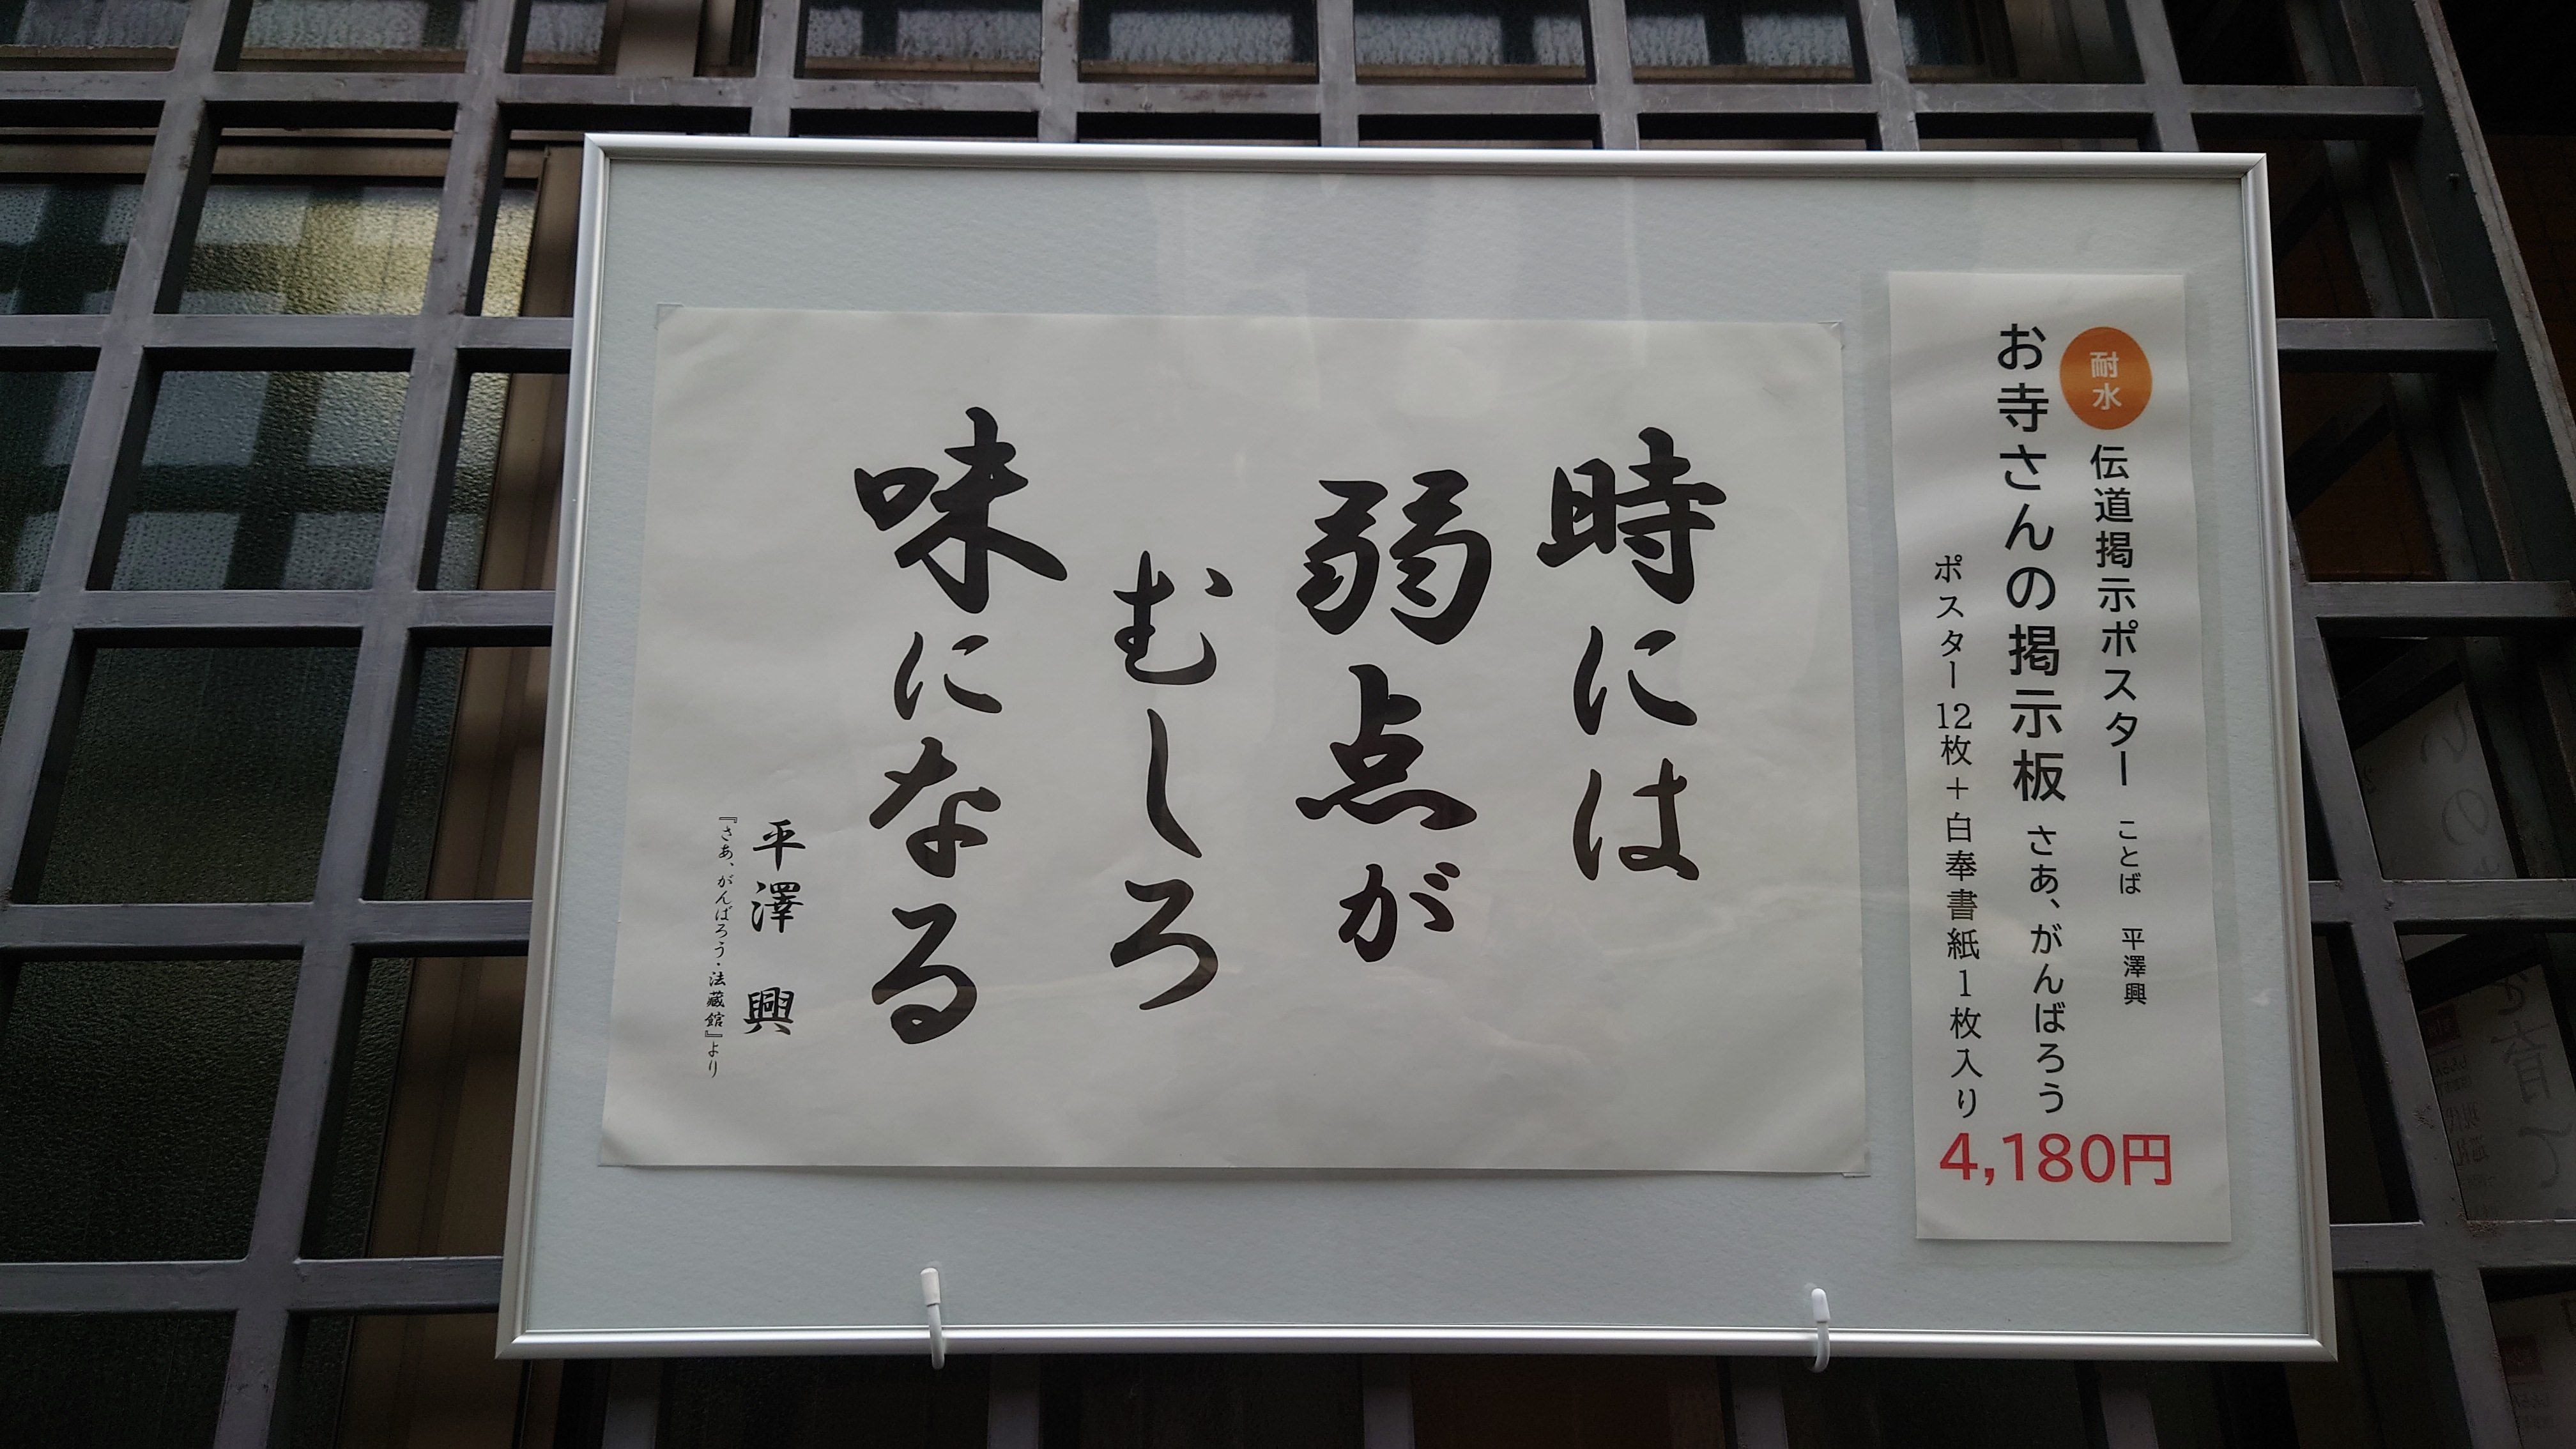 耐水
伝道掲示ポスター ことば 平澤興
お寺さんの掲示板 さあ、がんばろう
ポスター12枚+白奉書紙1枚入り
4,180円
時には
弱点が
むしろ
味になる
平澤 興
『さあ、がんばろう・法藏館』より